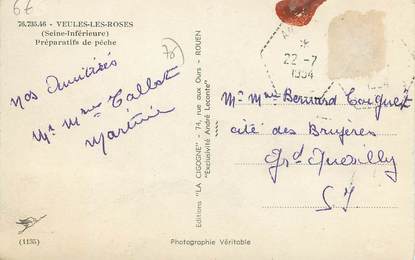 6€
76.735.46 - VEULES-LES-ROSES
(Seine-Inférieure)
Préparatifs de pêche
76
Nos Amitiés
Mr Mme Tallot
Martine
Editions "LA CIGOGNE" - 74, rue aux Ours - ROUEN
"Exclusivité André Leconte"
22-7
1954
Mr Mme Bernard
cité des Bruyères
Grd Quevilly
S I
(1135)
Photographie Véritable